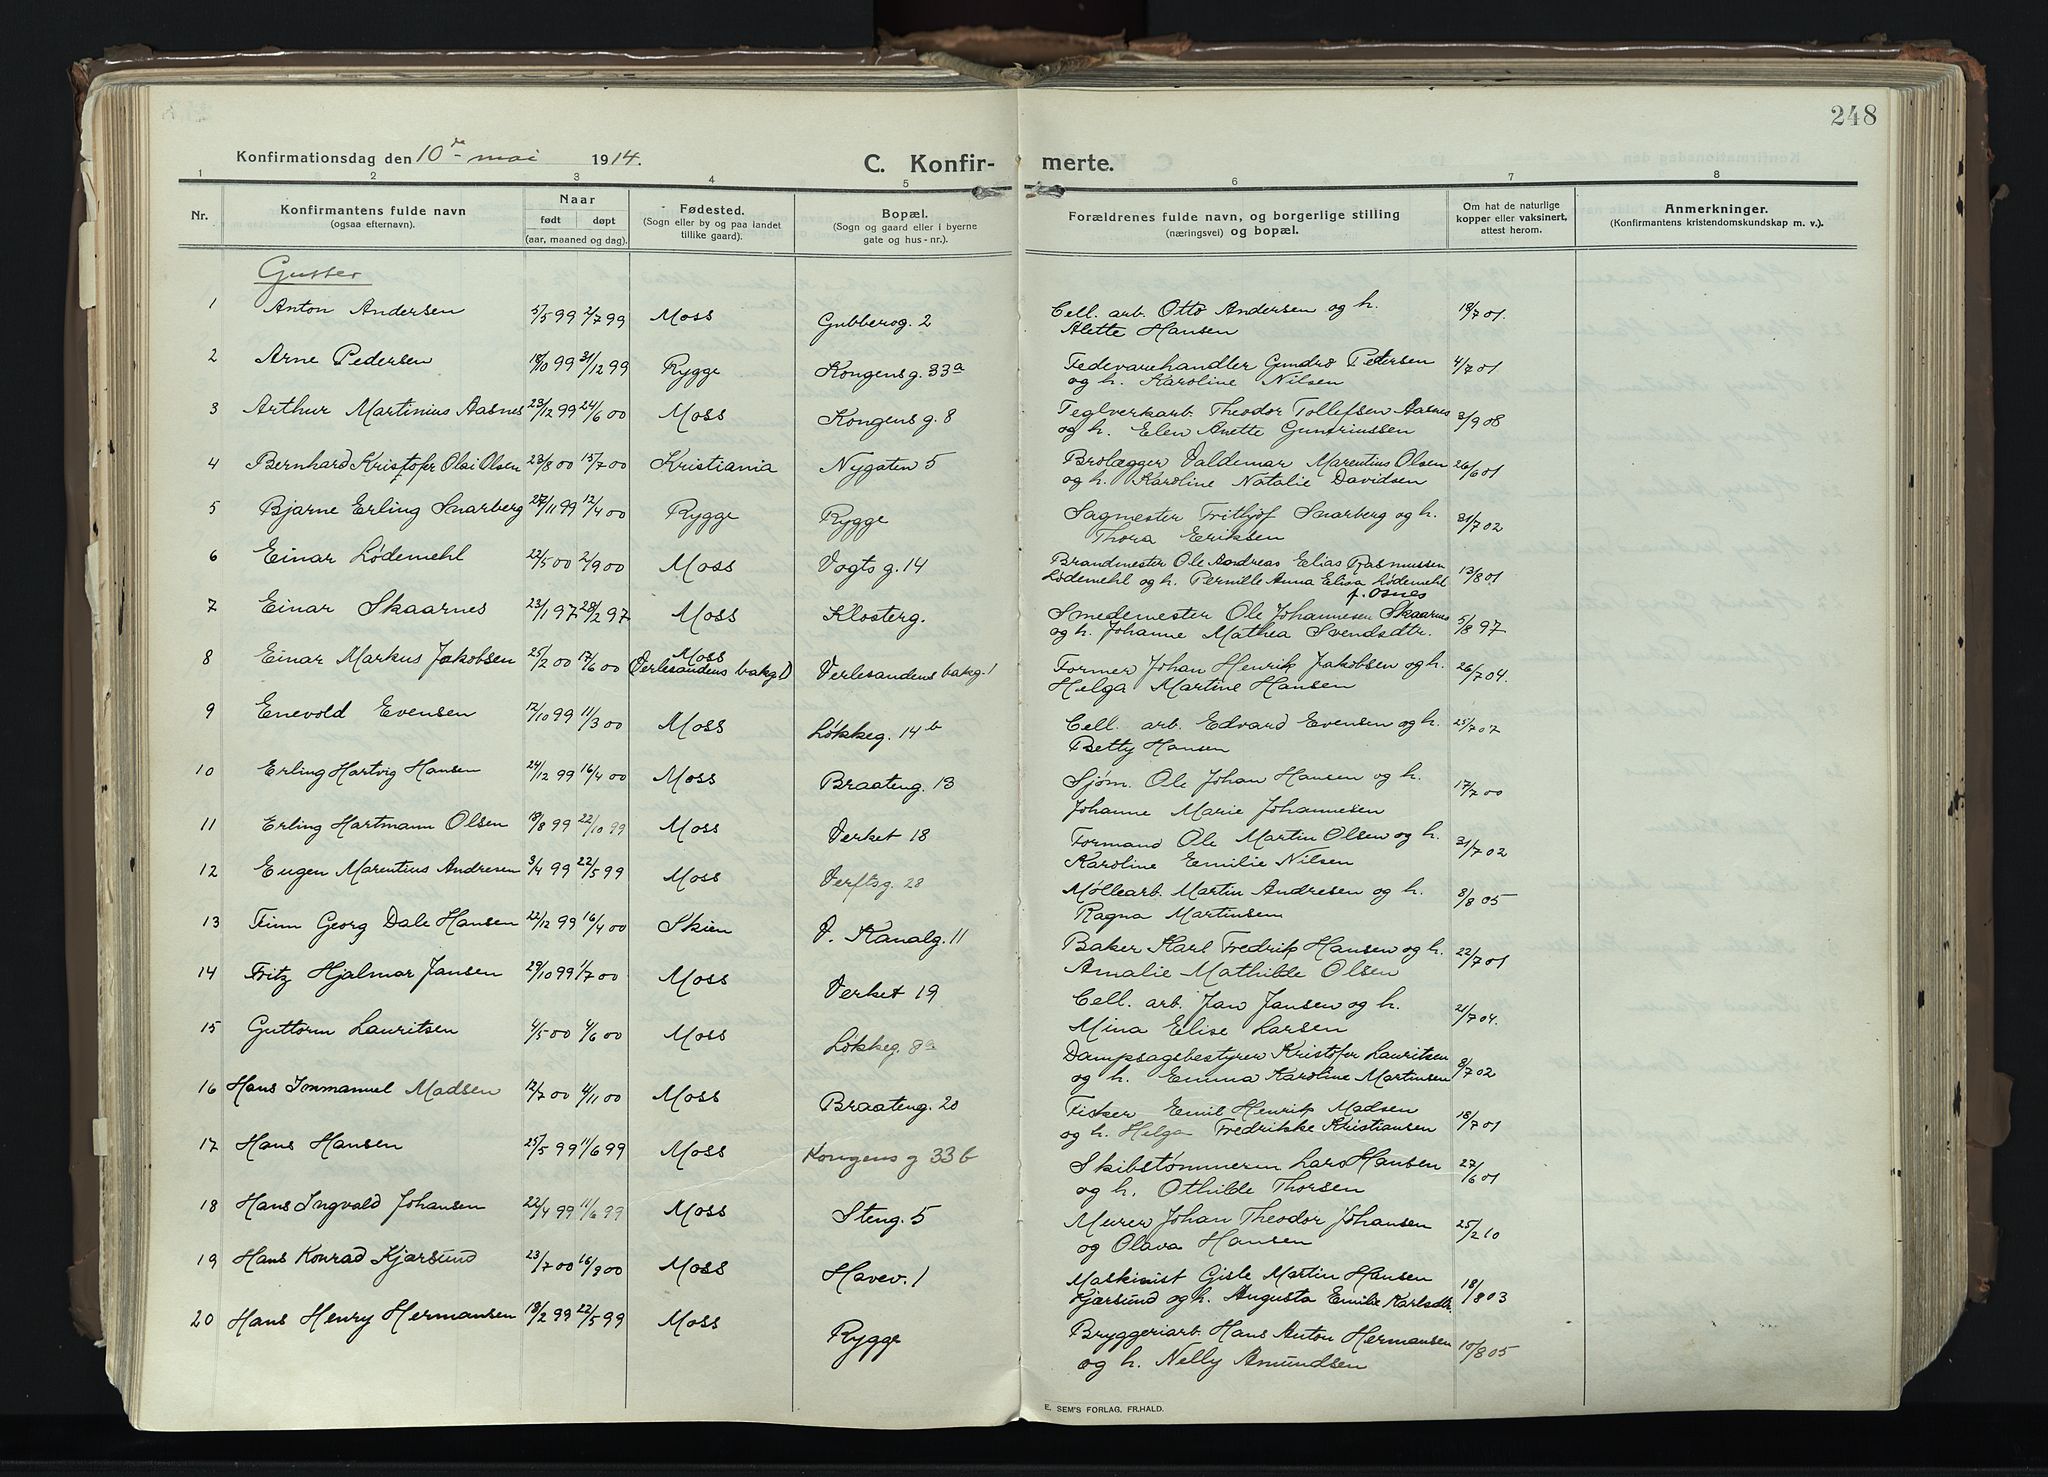 248
Konfirmationsdag den 10de mai 1914.
C. Konfirmerte.
1 2 3 4 5 6 7 8
Nr.
Konfirmantens fulde navn
(ogsaa efternavn).
Naar
født døpt
(aar, maaned og dag).
Fødested.
(Sogn eller by og paa landet
tillike gaard).
Bopæl.
(Sogn og gaard eller i byerne
gate og hus-nr.).
Forældrenes fulde navn, og borgerlige stilling
(næringsvei) og bopæl.
Om hat de naturlige
kopper eller vaksinert,
attest herom.
Anmerkninger.
(Konfirmantens kristendomskundskap m. v.).
Gutter
1 Anton Andersen 5/5 99 2/7 99 Moss Gubberog. 2 Cell. arb. Otto Andersen og h. 19/7 01.
Alette Hansen
2 Arne Pedersen 18/10 99 31/12 99 Rygge Kongensg. 33a Fedevarehandler Gundro Petersen 4/7 01
og h. Karoline Nilsen
3 Arthur Martinius Aasnes 23/12 99 24/6 00 Moss Kongensg. 8 Teglverkarb. Theodor Tollefsen Aasnes 3/9 08
og h. Elen Anette Gundriussen
4 Bernhard Kristofer Olai Olsen 23/8 00 15/7 00 Kristiania Nygaten 5 Brolægger Valdemar Marentius Olsen 26/6 01
og h. Karoline Natalie Davidsen
5 Bjarne Erling Snarberg 27/11 99 12/4 00 Rygge Rygge Sagmester Frithjof Snarberg og h. 31/7 02
Thora Eriksen
6 Einar Lødemehl 22/5 00 2/9 00 Moss Vogtsg. 14 Brandmester Ole Andreas Elias Rasmussen 13/8 01
Lødemehl og h. Pernille Anna Elisa Lødemehl
f. Osnes
7 Einar Skaarnes 23/1 97 28/2 97 Moss Klosterg. Smedemester Ole Johannesen Skaarnes 5/8 97
og h. Johanne Mathea Svendsdtr.
8 Einar Markus Jakobsen 25/2 00 17/6 00 Moss Verlesandens bakg. 1 Former Johan Henrik Jakobsen og h. 26/7 04.
(Verlesandens bakg 1) Helga Martine Hansen
9 Enevold Evensen 12/10 99 11/3 00 Moss Løkkeg. 14b Cell. arb. Edvard Evensen og h. 25/7 07
Betty Hansen
10 Erling Hartvig Hansen 24/12 99 16/4 00 Moss Braateng. 13 Sjøm. Ole Johan Hansen og h. 17/7 00
Johanne Marie Johannesen
11 Erling Hartmann Olsen 18/8 99 22/10 99 Moss Verket 18 Formand Ole Martin Olsen og h. 31/7 02
Karoline Emilie Nilsen
12 Eugen Marentius Andresen 3/4 99 22/5 99 Moss Verftsg. 28 Møllearb. Martin Andresen og h. 8/8 05
Ragna Martinsen
13 Finn Georg Dale Hansen 22/12 99 16/4 00 Skien V. Kanalg. 11 Baker Karl Fredrik Hansen og h. 22/7 01
Amalie Mathilde Olsen
14 Fritz Hjalmar Jansen 29/10 99 1/7 00 Moss Verket 19 Cell. arb. Jan Jansen og h. 21/7 04.
Mina Elise Larsen
15 Guttorm Lauritsen 4/5 00 4/6 00 Moss Løkkeg. 8a Dampsagsbestyrer Kristofer Lauritsen 8/7 02
og h. Emma Karoline Martinsen
16 Hans Immanuel Madsen 12/7 00 4/11 00 Moss Braateng. 20 Fisker Emil Henrik Madsen 18/7 01
og h. Helga Fredrikke Kristiansen
17 Hans Hansen 25/5 99 11/6 99 Moss Kongens g 33 b Skibstømmerm Lars Hansen 27/6 01
og h. Othilde Thorsen
18 Hans Ingvald Johansen 22/4 99 11/6 99 Moss Steng. 5 Murer Johan Theodor Johansen 25/2 10
og Olava Hansen
19 Hans Konrad Kjærsund 23/7 00 16/9 00 Moss Havev. 1 Maskinist Gisle Martin Hansen 18/8 03
Kjærsund og h. Augusta Emilie Karlsdtr.
20 Hans Henry Hermansen 18/2 99 22/5 99 Moss Rygge Bryggeriarb. Hans Anton Hermansen 10/8 05
og h. Nelly Amundsen
E. SEM'S FORLAG, FR.HALD.